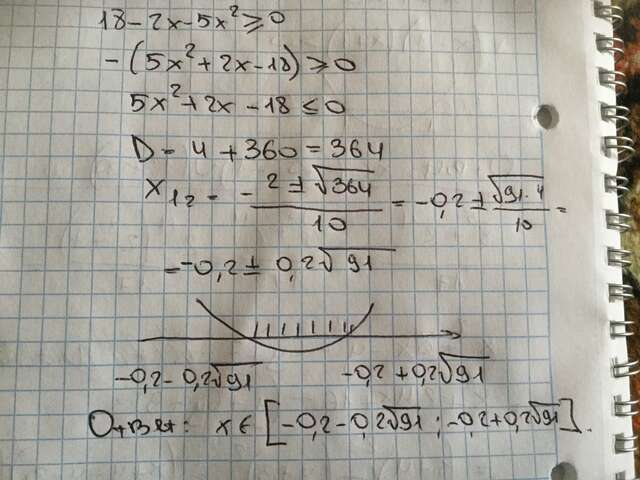 18 - 2x - 5x² ≥ 0
- (5x² + 2x - 18) ≥ 0
5x² + 2x - 18 ≤ 0
D = 4 + 360 = 364
X₁₂ = - 2 ± √364 / 10 = -0,2 ± √91·4 / 10 =
= -0,2 ± 0,2√91
-0,2 - 0,2√91 -0,2 + 0,2√91
Ответ: x ∈ [-0,2 - 0,2√91 ; -0,2 + 0,2√91].